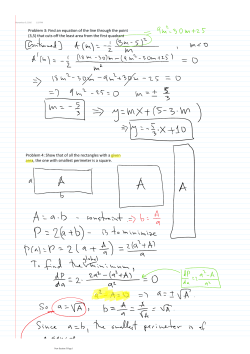 Problem 3: Find an equation of the line through the point
(3,5) that cuts off the least area from the first quadrant
9m²-30m+25
[continued] A(m) = -½ (3m-5)²/m , m<0
A'(m) = -½ (18m-30)m-(9m²-30m+25)/m² = 0
⇒ 18m²-30m-9m²+30m-25=0
⇒ 9m²-25=0 m=± 5/3
m=-5/3 ⇒ y=mx+(5-3·m)
⇒ y=-5/3·x+10
Problem 4: Show that of all the rectangles with a given
area, the one with smallest perimeter is a square.
a A A A
b
A = a·b - constraint ⇒ b = A/a
P = 2(a+b) - is to minimize
P(a) = P = 2(a + A/a) = 2(a²+A)/a
To find the minimum,
dP/da = 2· 2a²-(a²+A)/a² = 0
a²-A=0 ⇒ a=±√A
So a=√A, b = A/a = A/√A = √A
Since a=b, the smallest perimeter is of